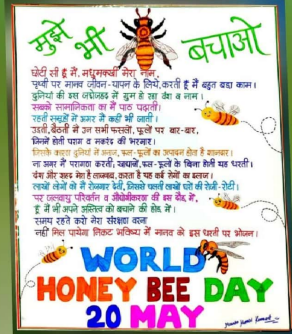 मुझे भी बचाओ
छोटी सी हूँ मैं, मधुमक्खी मेरा नाम
पृथ्वी पर मानव जीवन-यापन के लिये, करती हूँ मैं बहुत बड़ा काम।
दुनियाँ की इस में गुम हो रहा मेरा नाम।
सबको सामाजिकता का मैं पाठ पढ़ाती।
रहती समूहों में अगर मैं कहीं भी जाती।
उड़ती, बैठती मैं उन सभी फसलों, फूलों पर बार-बार,
जिनमें होती पराग व मकरंद की भरमार।
जिसके कारण दुनियाँ में अनाज, फल-फूलों का उत्पादन होता है शानदार।
ना अगर मैं परागण करती, खाद्यान्नों, फल-फूलों के बिना होती यह धरती।
और शहद मेरा है लाजवाब, करता है यह कई रोगों का इलाज।
लाखों लोगों को मैं रोजगार देती, जिससे चलती लाखों घरों की रोजी-रोटी।
पर जलवायु परिवर्तन व औद्योगीकरण की इस दौड़ में,
हूँ मैं भी अपने अस्तित्व को बचाने की होड़ में।
समय रहते करो मेरा संरक्षण वरना
नहीं मिल पायेगा निकट भविष्य में मानव को इस धरती पर भोजन।
WORLD
HONEY BEE DAY
20 MAY